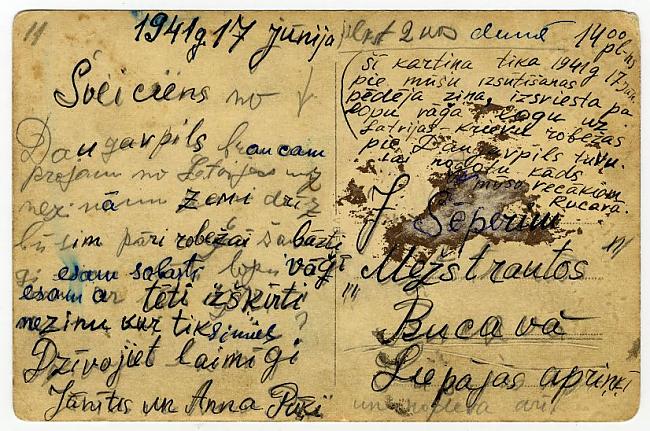 1941g 17 jūnija plkst 2 nos dienā 14 00 pl.
Sveiciens no
Daugavpils braucam
projam no Latvijas uz
nezināmu zemi drīz
būsim pāri robežai
esam sabāsti lopu vāģī
esam ar tēti izšķirti
nezinu kur tiksimies ?
Dzīvojiet laimīgi
Jānītis un Anna Pūķi
Šī kartiņa tika 1941g 17 jūn.
pie mūsu izsūtīšanas
pēdēja ziņa, izsviesta pa
lopu vāģa logu uz
Latvijas - Krievu robežas
pie Daugavpils tuvu.
lai nodotu kāds
mūsu vecākiem
Rucavā.
J Sēperim
"Mežstrautos"
Rucavā
Liepājas apriņķī